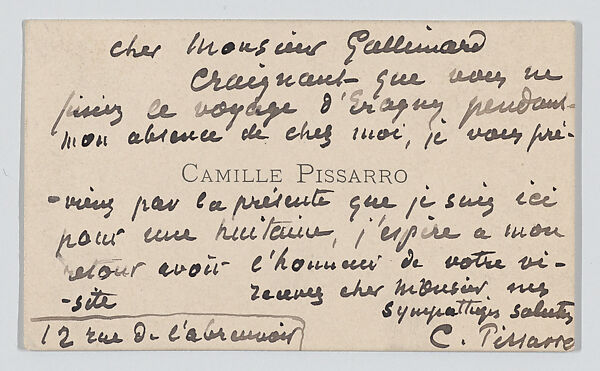 cher Monsieur Gallimard
craignant que vous ne
fissiez ce voyage d'Eragny pendant
mon absence de chez moi, je vous pré-
CAMILLE PISSARRO
-viens par la présente que je suis ici
pour une huitaine, j'espère a mon
retour avoir l'honneur de votre vi-
-site recevez cher Monsieur mes
sympathiques salutes
12 rue de l'abreuvoir C. Pissarro